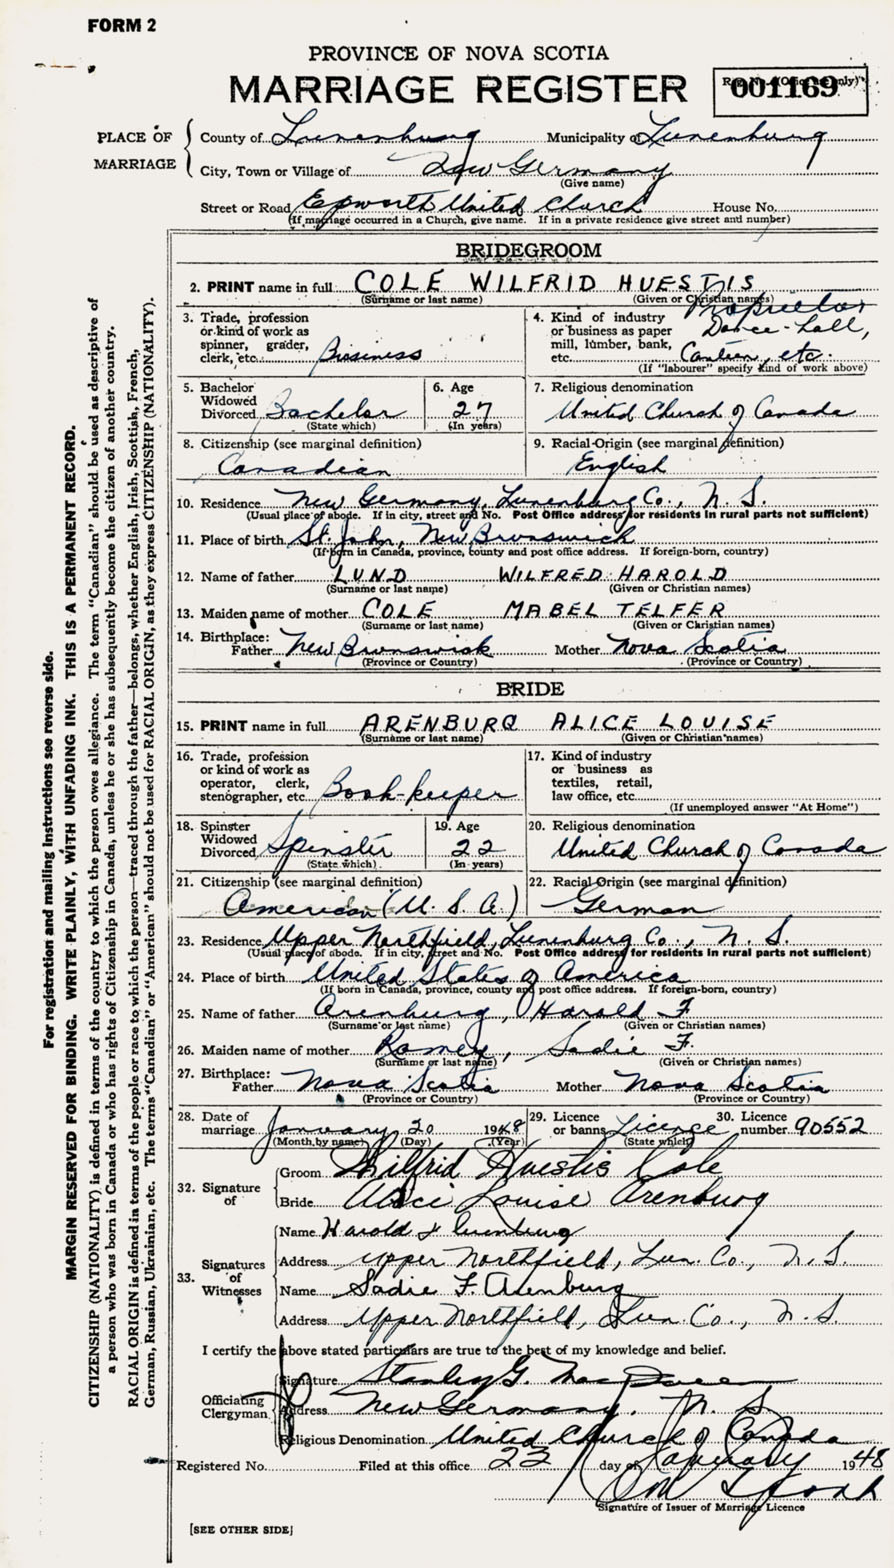 FORM 2
PROVINCE OF NOVA SCOTIA
MARRIAGE REGISTER
Reg. No. (Office use only)
001169
PLACE OF MARRIAGE
County of Lunenburg Municipality of Lunenburg
City, Town or Village of New Germany
(Give name)
Street or Road Epworth United Church House No.
(If marriage occurred in a Church, give name. If in a private residence give street and number)
BRIDEGROOM
2. PRINT name in full COLE WILFRID HUESTIS
(Surname or last name) (Given or Christian names)
3. Trade, profession or kind of work as spinner, grader, clerk, etc. Business
4. Kind of industry or business as paper mill, lumber, bank, etc. Proprietor Dance-Hall, Canteen, etc.
(If "labourer" specify kind of work above)
5. Bachelor Widowed Divorced Bachelor
(State which)
6. Age 27
(In years)
7. Religious denomination
United Church of Canada
8. Citizenship (see marginal definition)
Canadian
9. Racial Origin (see marginal definition)
English
10. Residence New Germany, Lunenburg Co., N. S.
(Usual place of abode. If in city, street and No. Post Office address for residents in rural parts not sufficient)
11. Place of birth St. John, New Brunswick
(If born in Canada, province, county and post office address. If foreign-born, country)
12. Name of father LUND WILFRED HAROLD
(Surname or last name) (Given or Christian names)
13. Maiden name of mother COLE MABEL TELFER
(Surname or last name) (Given or Christian names)
14. Birthplace: Father New Brunswick Mother Nova Scotia
(Province or Country) (Province or Country)
BRIDE
15. PRINT name in full ARENBURG ALICE LOUISE
(Surname or last name) (Given or Christian names)
16. Trade, profession or kind of work as operator, clerk, stenographer, etc. Book-keeper
17. Kind of industry or business as textiles, retail, law office, etc.
(If unemployed answer "At Home")
18. Spinster Widowed Divorced Spinster
(State which)
19. Age 22
(In years)
20. Religious denomination
United Church of Canada
21. Citizenship (see marginal definition)
American (U. S. A.)
22. Racial Origin (see marginal definition)
German
23. Residence Upper Northfield, Lunenburg Co., N. S.
(Usual place of abode. If in city, street and No. Post Office address for residents in rural parts not sufficient)
24. Place of birth United States of America
(If born in Canada, province, county and post office address. If foreign-born, country)
25. Name of father Arenburg, Harold F.
(Surname or last name) (Given or Christian names)
26. Maiden name of mother Ramey, Sadie F.
(Surname or last name) (Given or Christian names)
27. Birthplace: Father Nova Scotia Mother Nova Scotia
(Province or Country) (Province or Country)
28. Date of marriage January 20 1948
(Month by name) (Day) (Year)
29. Licence or banns License
(State which)
30. Licence number 90552
32. Signature of
Groom Wilfrid Huestis Cole
Bride Alice Louise Arenburg
33. Signatures of Witnesses
Name Harold F Arenburg
Address Upper Northfield, Lun. Co., N. S.
Name Sadie F. Arenburg
Address Upper Northfield, Lun. Co., N. S.
I certify the above stated particulars are true to the best of my knowledge and belief.
Officiating Clergyman
Signature Stanley G.
Address New Germany, N. S.
Religious Denomination United Church of Canada
Registered No. Filed at this office 23 day of January 1948
Signature of Issuer of Marriage Licence
[SEE OTHER SIDE]
For registration and mailing instructions see reverse side.
MARGIN RESERVED FOR BINDING. WRITE PLAINLY, WITH UNFADING INK. THIS IS A PERMANENT RECORD.
CITIZENSHIP (NATIONALITY) is defined in terms of the country to which the person owes allegiance. The term "Canadian" should be used as descriptive of
a person who was born in Canada or who has rights of Citizenship in Canada, unless he or she has subsequently become the citizen of another country.
RACIAL ORIGIN is defined in terms of the people or race to which the person—traced through the father—belongs, whether English, Irish, Scottish, French,
German, Russian, Ukrainian, etc. The terms "Canadian" or "American" should not be used for RACIAL ORIGIN, as they express CITIZENSHIP (NATIONALITY).